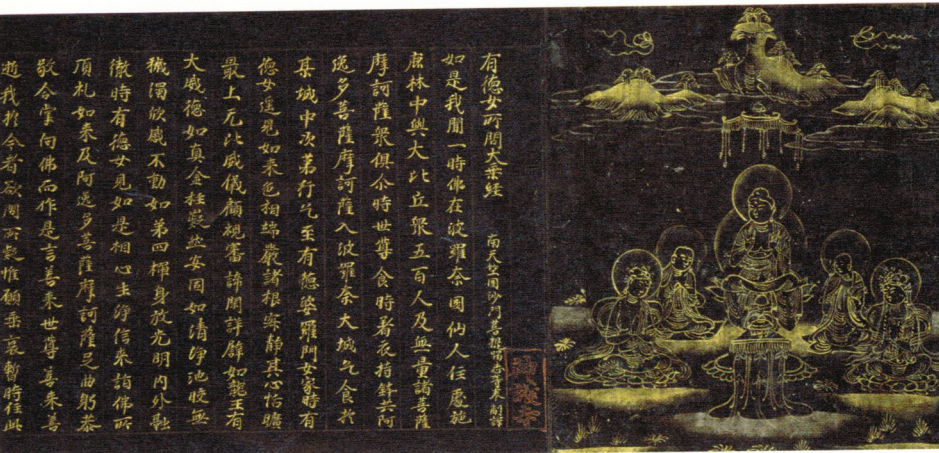 有德女所問大乘經 南天竺國沙門菩提留志奉 制譯
神護寺
如是我聞一時佛在波羅奈國仙人住處施
鹿林中與大比丘衆五百人及無量諸菩薩
摩訶薩衆俱尒時世尊食時著衣持鉢共阿
逸多菩薩摩訶薩入波羅奈大城乞食於
其城中次第行乞至有德婆羅門女家時有
德女遥見如来色相端嚴諸根寂靜其心恬曠
最上无比威儀顧視審諦閑詳辟如龍王有
大威德如真金柱巍然安固如清淨池皎無
穢濁欣感不動如第四禪身放光明内外融
徹時有德女見如是相心生淨信来詣佛所
頂礼如来及阿逸多菩薩摩訶薩足曲躬恭
敬合掌向佛而作是言善来世尊善来善
逝我於今者欲問所疑惟願垂哀暫時住此